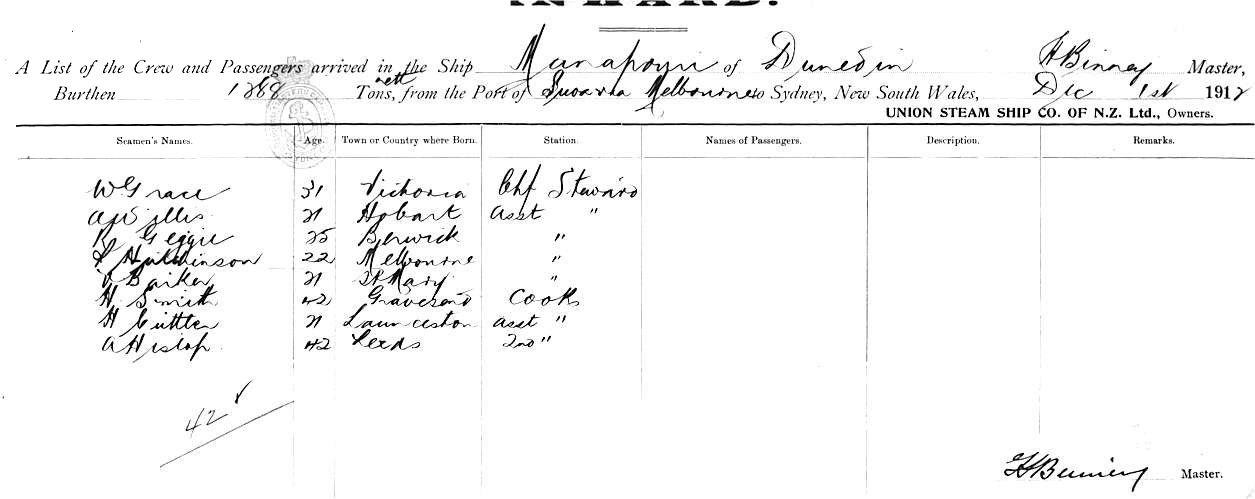 INWARD.
A List of the Crew and Passengers arrived in the Ship Manapouri of Dunedin H Binney Master,
Burthen 1288 nett Tons, from the Port of Melbourne to Sydney, New South Wales, Dec 1st 1912
UNION STEAM SHIP CO. OF N.Z. Ltd., Owners.
Seamen's Names. Age. Town or Country where Born. Station. Names of Passengers. Description. Remarks.
W Grace 31 Victoria Chf Steward
A Willis 21 Hobart Asst "
R Geggie 25 Berwick "
Hutchinson 22 Melbourne "
Barker 21 St Mary "
H Smith 42 Gravesend Cook
H Cuttler 21 Launceston Asst "
A Hislop 42 Leeds 2nd "
42
H Binney Master.